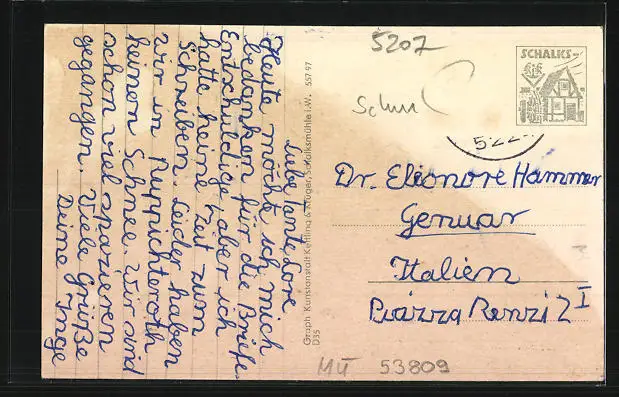 Liebe Tante Lore
Heute möchte ich mich
bedanken für die Briefe.
Entschuldige, aber ich
hatte keine Zeit zum
Schreiben. Leider haben
wir in Ruppichteroth
keinen Schnee. Wir sind
schon viel spazieren
gegangen. Viele Grüße
Deine Inge
Graph. Kunstanstalt Kettling & Krüger, Schalksmühle i.W. 557 97
D35
5207
SCHALKS-
K&K
5221
Dr. Elionore Hammer
Genuar
Italien
Piazza Renzi 2 I
MÜ 53809